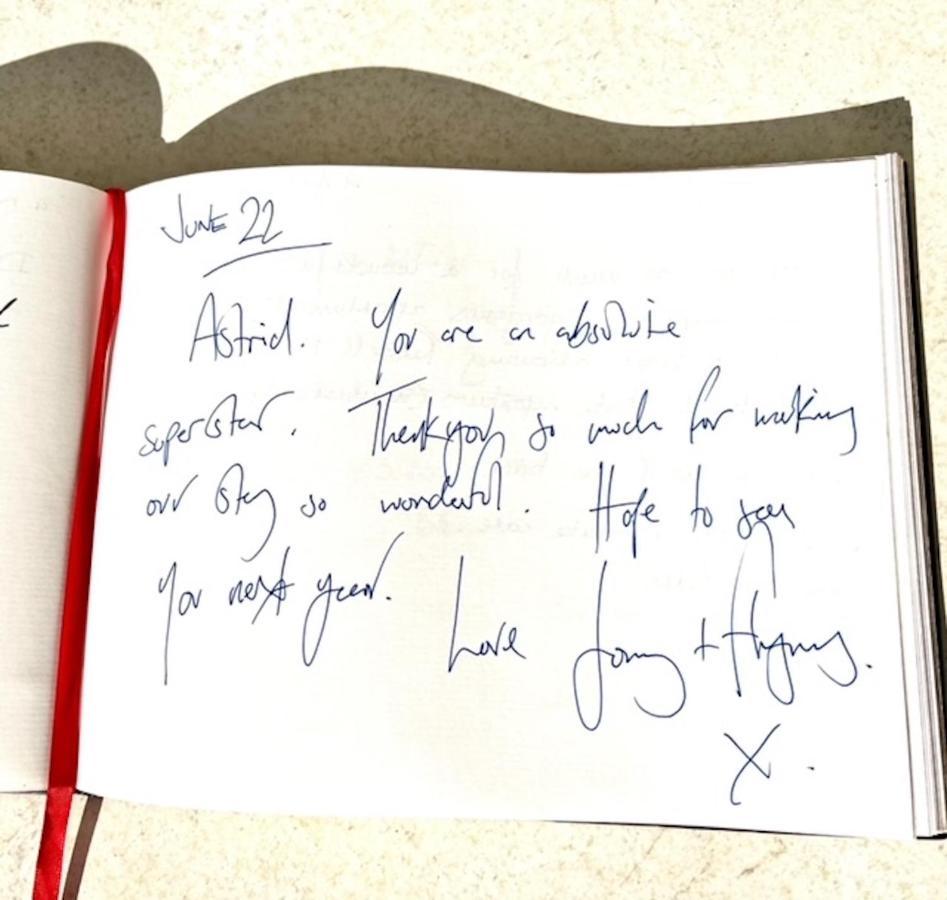 JUNE 22
Astrid. You are an absolute
superstar. Thank you so much for making
our stay so wonderful. Hope to see
you next year.
Love Jonny +
X.